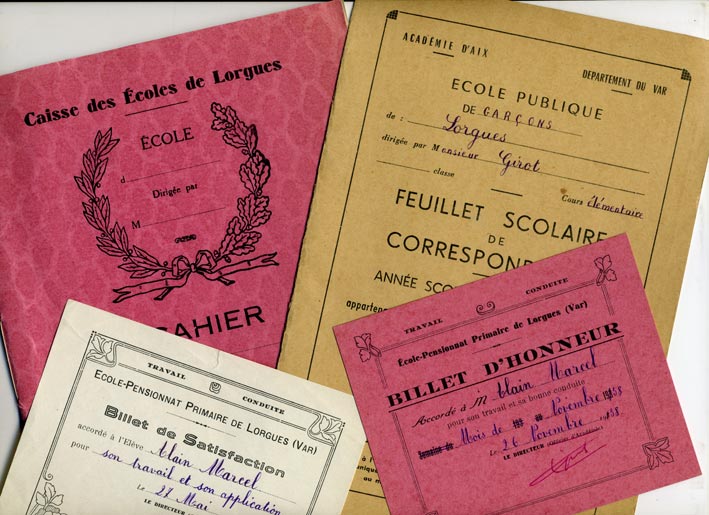 Caisse des Écoles de Lorgues
ÉCOLE
d
Dirigée par
M
CAHIER
ACADÉMIE D'AIX
DÉPARTEMENT DU VAR
ECOLE PUBLIQUE
DE GARÇONS
de : Lorgues
dirigée par Monsieur Girot
classe
Cours élémentaire
FEUILLET SCOLAIRE
DE
CORRESPON
ANNÉE SCO
appartena
TRAVAIL CONDUITE
ECOLE-PENSIONNAT PRIMAIRE DE LORGUES (VAR)
Billet de Satisfaction
accordé à l'Elève Alain Marcel
pour son travail et son application
Le 27 Mai
LE DIRECTEUR
TRAVAIL CONDUITE
École-Pensionnat Primaire de Lorgues (Var)
BILLET D'HONNEUR
Accordé à M Alain Marcel
pour son travail et sa bonne conduite
Mois de Novembre 1958
Le 26 Novembre 1958
LE DIRECTEUR